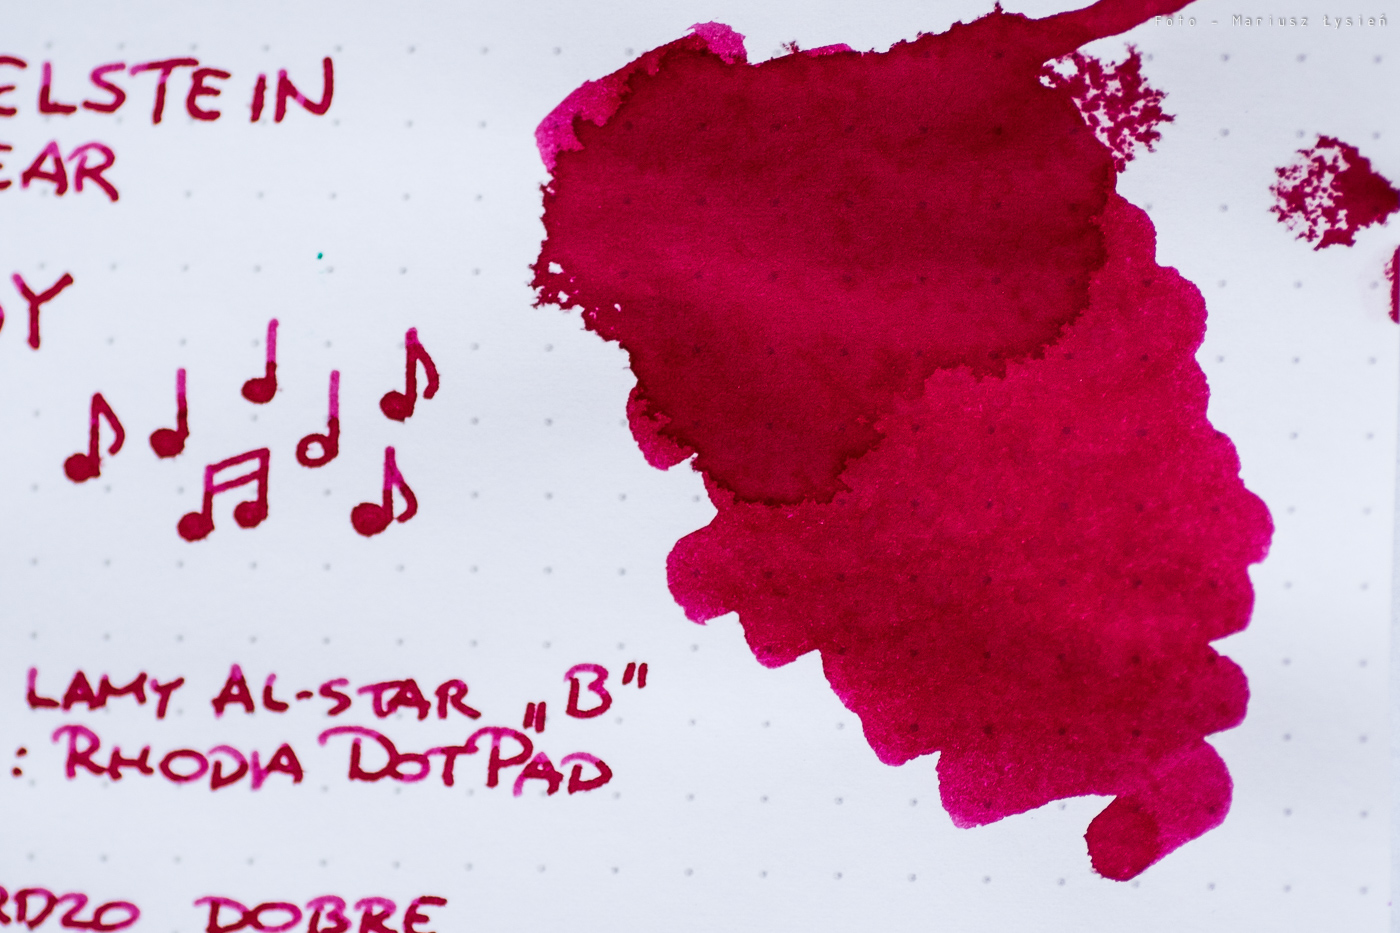 Foto - Mariusz Łysień
ELSTEIN
EAR
Y
LAMY AL-STAR „B"
: RHODIA DOTPAD
RDZO DOBRE